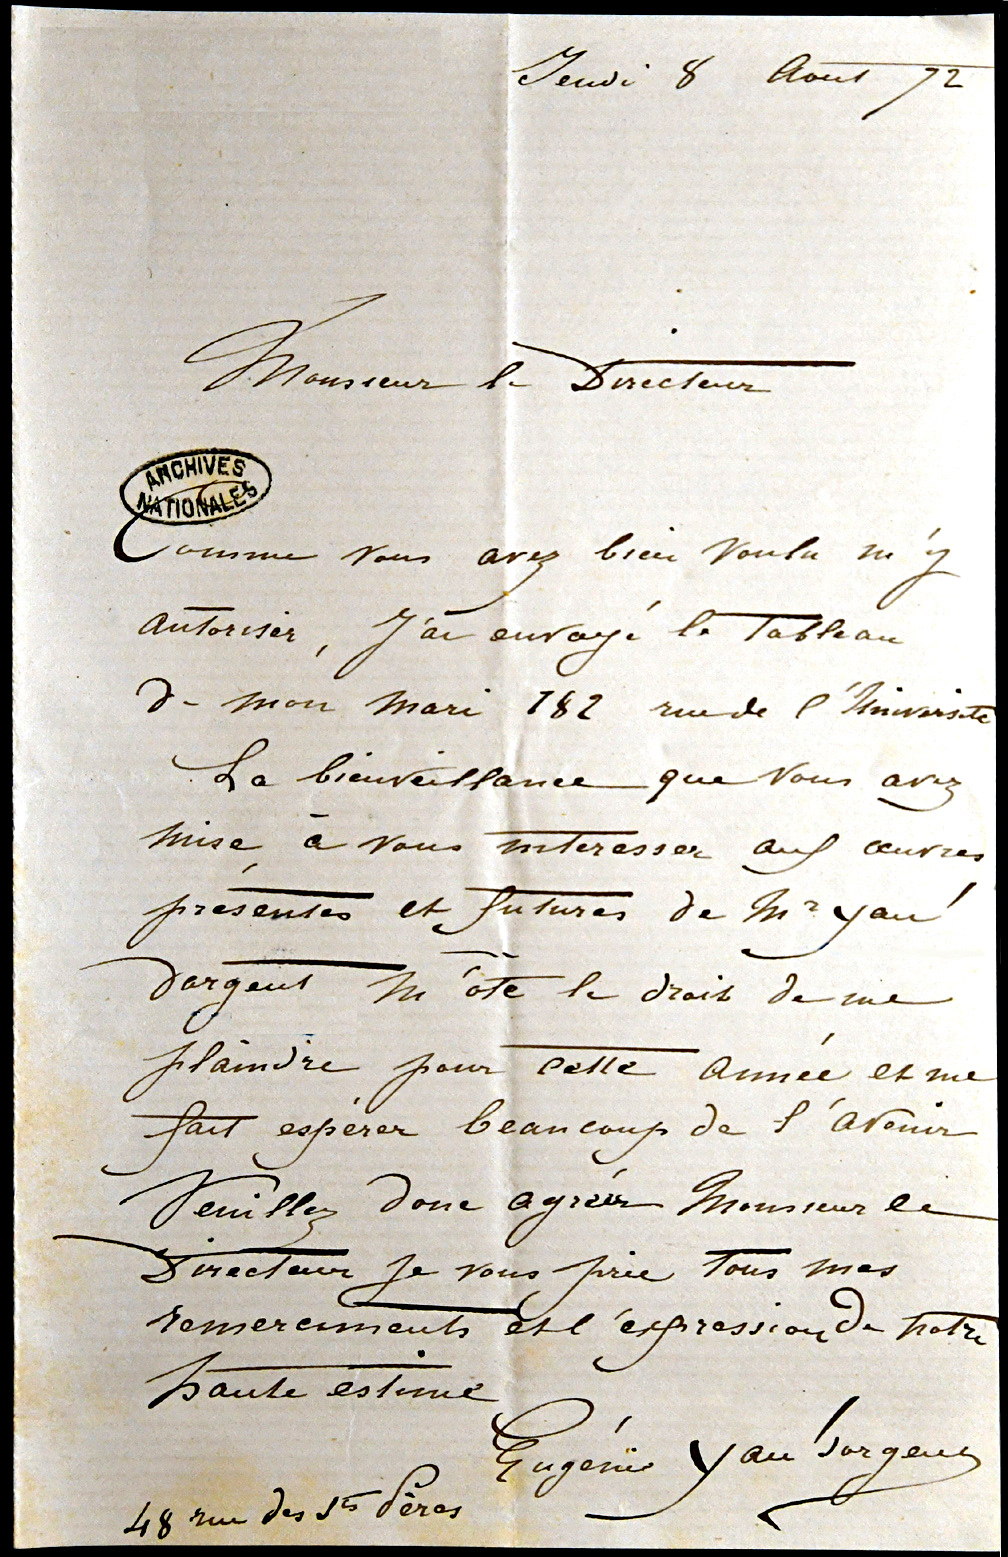 Jeudi 8 Aout 72
Monsieur le Directeur
ARCHIVES
NATIONALES
Comme vous avez bien voulu m'y
autoriser, J'ai envoyé le tableau
de mon mari 182 rue de l'Université
La bienveillance que vous avez
mise à vous interesser aux œuvres
présentes et futures de Mr Yan'
dargent m'ôte le droit de me
plaindre pour cette année et me
fait espérer beaucoup de l'avenir
Veuillez donc agréer Monsieur le
Directeur je vous prie tous mes
remerciments et l'expression de notre
haute estime
Eugénie Yan' dargent
48 rue des Sts Pères